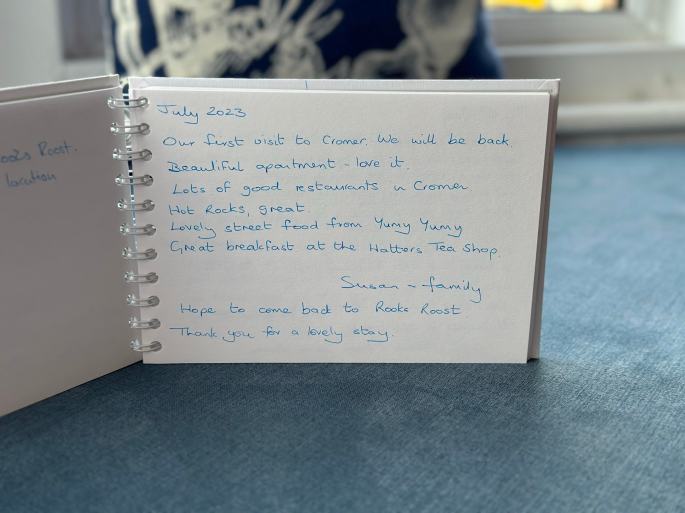 Roost.
location
July 2023
Our first visit to Cromer. We will be back.
Beautiful apartment - love it.
Lots of good restaurants in Cromer
Hot Rocks, great.
Lovely street food from Yumy Yumy
Great breakfast at the Hatters Tea Shop.
Susan ~ family
Hope to come back to Rooks Roost
Thank you for a lovely stay.